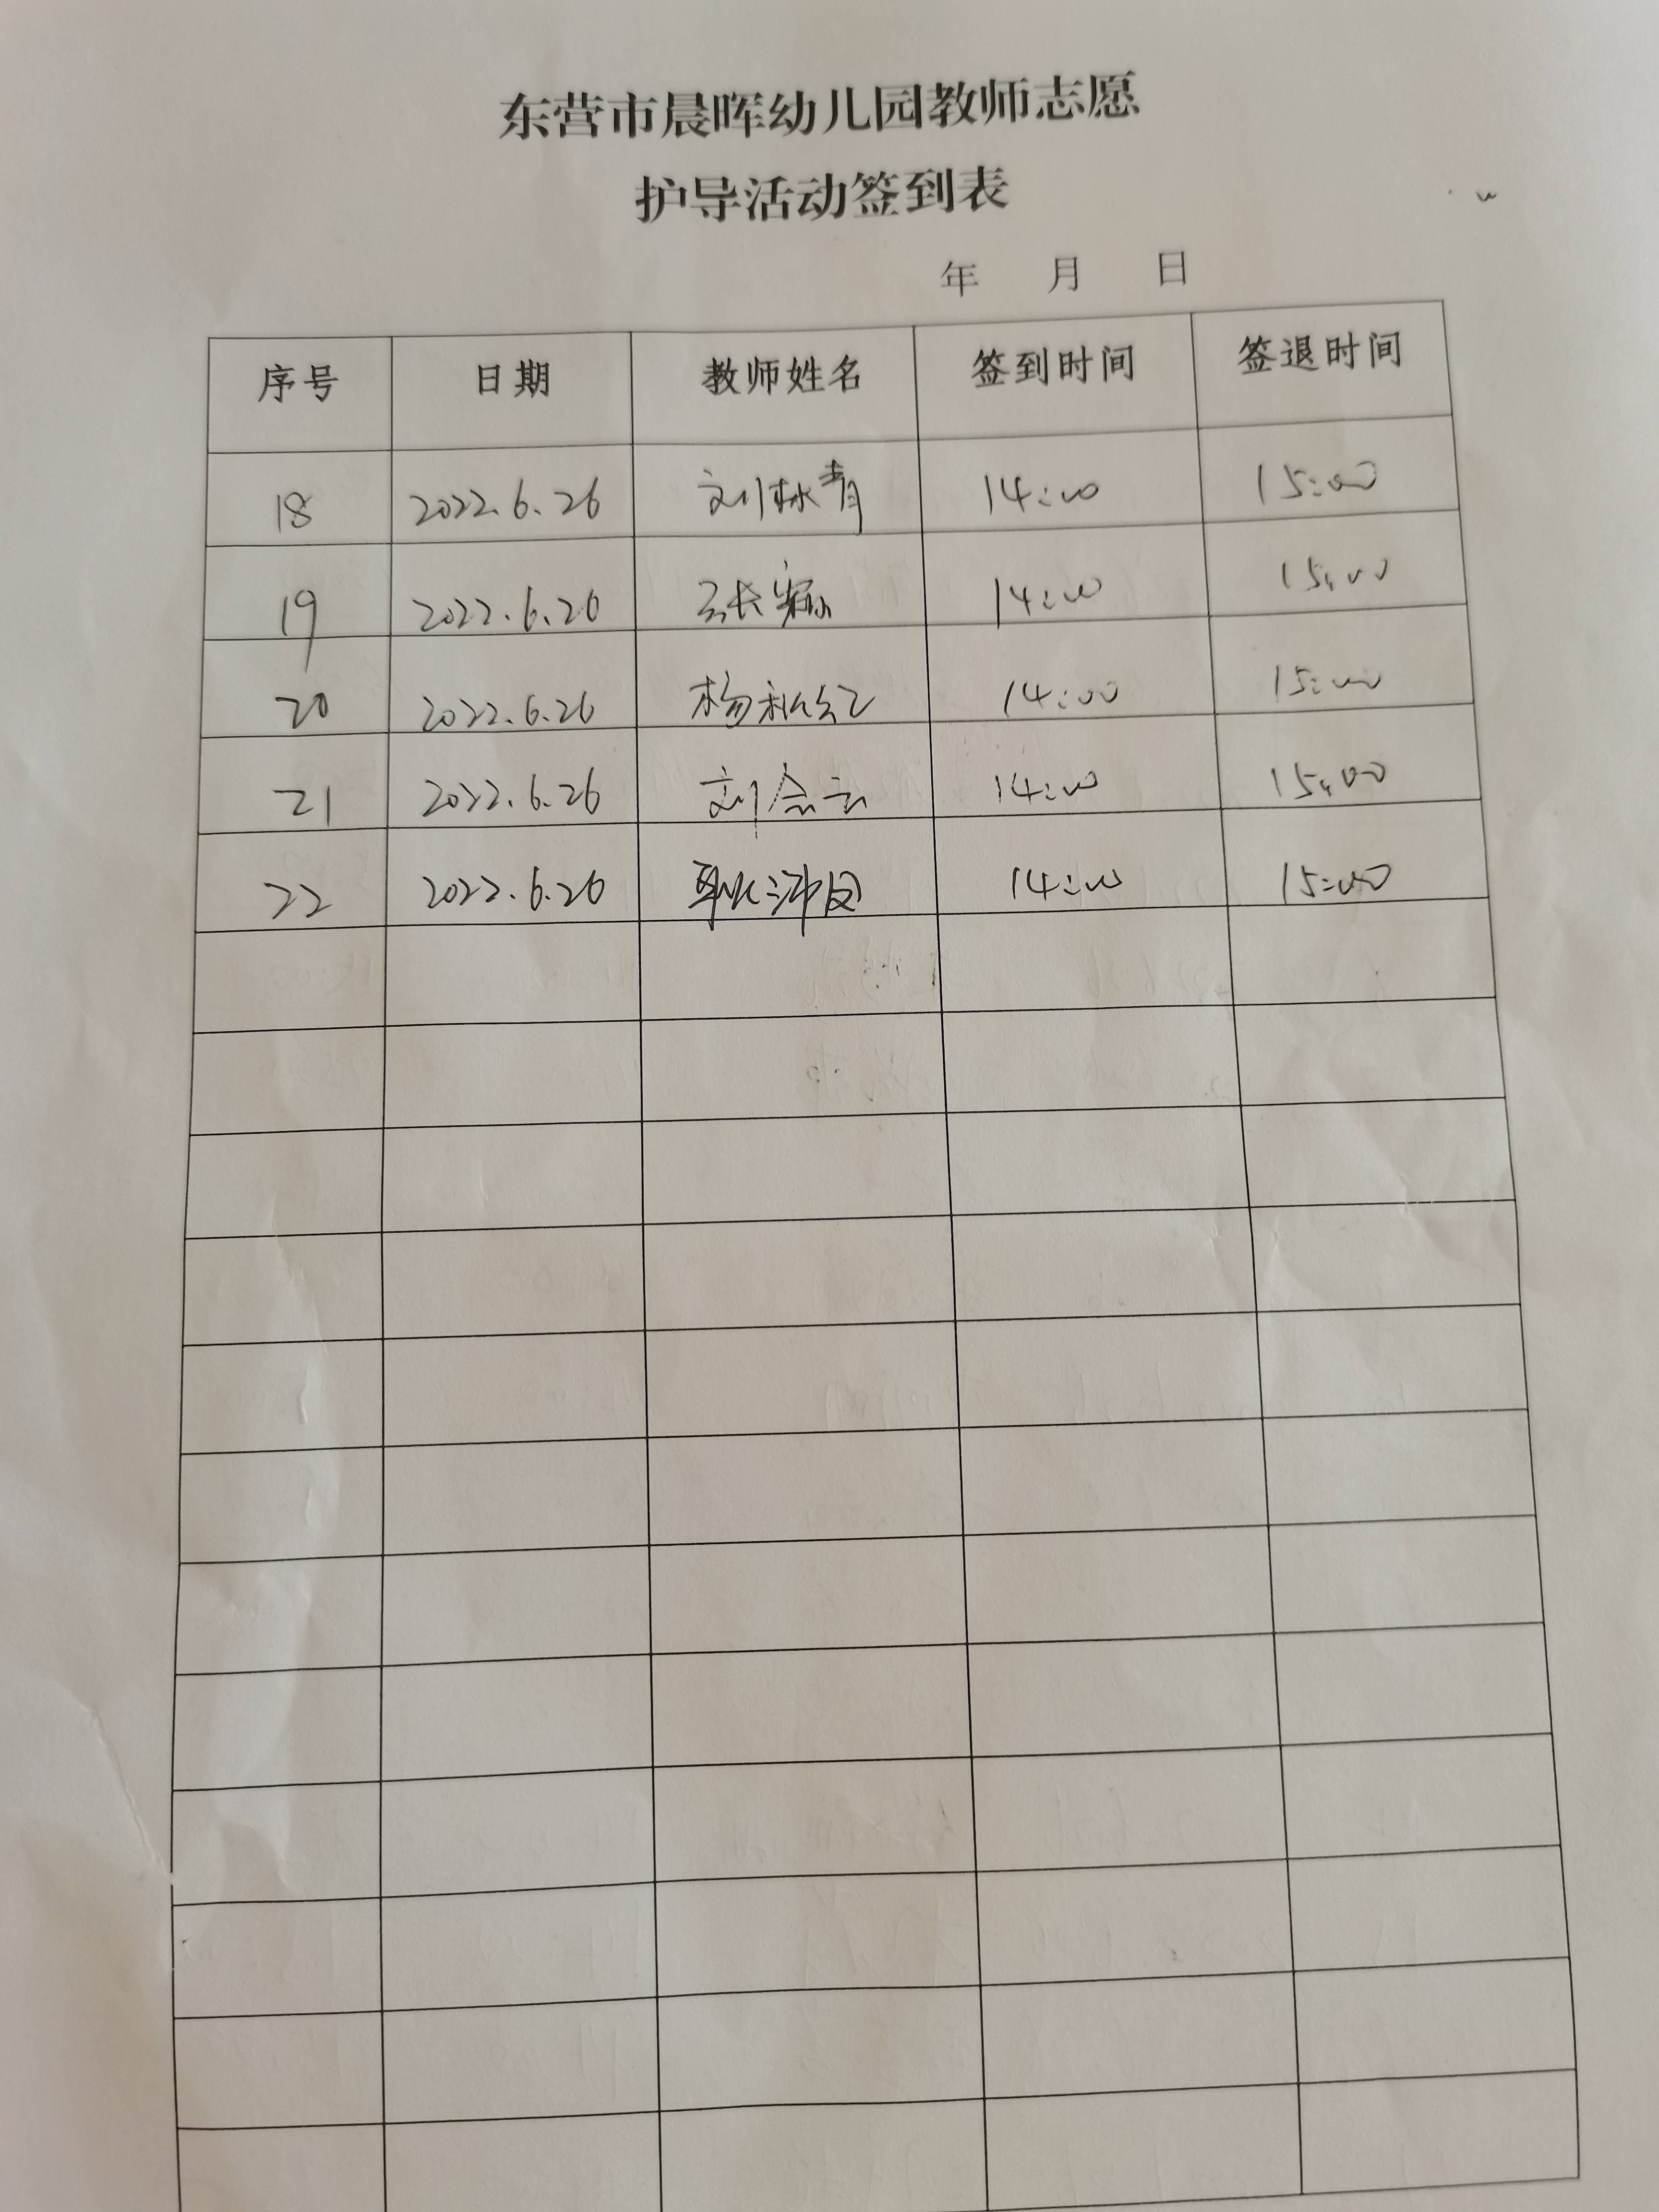 东营市晨晖幼儿园教师志愿
护导活动签到表
年 月 日
序号 日期 教师姓名 签到时间 签退时间
18 2022.6.26 刘林青 14:00 15:00
19 2022.6.26 张 14:00 15:00
20 2022.6.26 杨秋红 14:00 15:00
21 2022.6.26 刘会云 14:00 15:00
22 2022.6.26 耿沛园 14:00 15:00